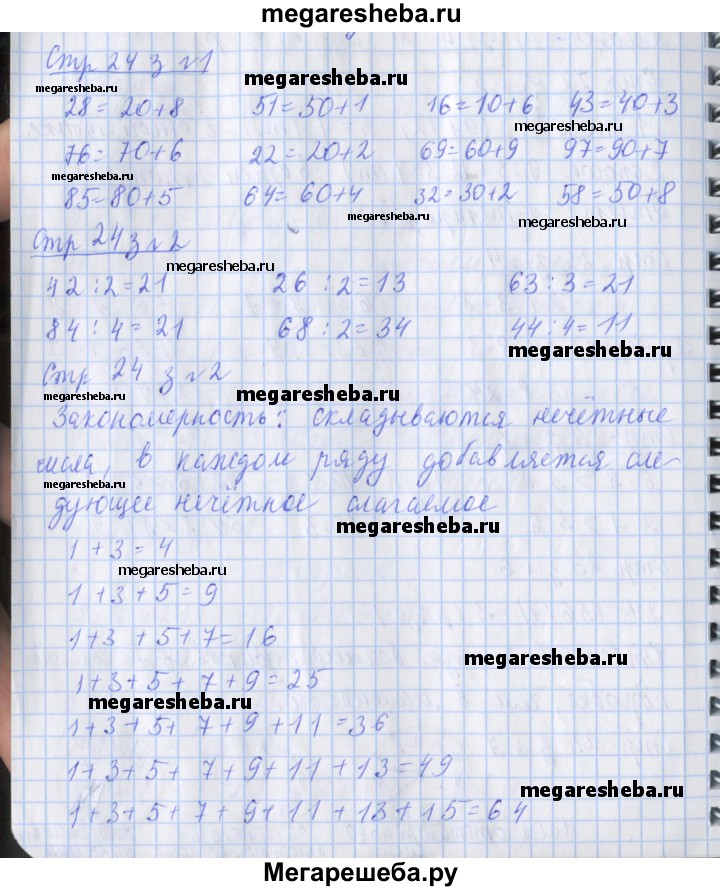 megaresheba.ru
Стр 24 з №1
megaresheba.ru
megaresheba.ru
28 = 20+8 51=50+1 16=10+6 43=40+3
megaresheba.ru
76= 70+6 22=20+2 69=60+9 97=90+7
85=80+5 64= 60+4 32=30+2 58=50+8
megaresheba.ru
megaresheba.ru
Стр 24 з №2
megaresheba.ru
42:2=21 26:2=13 63:3=21
84:4=21 68:2=34 44:4=11
megaresheba.ru
Стр 24 з №2
megaresheba.ru
Закономерность: складываются нечётные
числа, в каждом ряду добавляется сле-
megaresheba.ru
дующее нечётное слагаемое
megaresheba.ru
1+3=4
megaresheba.ru
megaresheba.ru
1+3+5=9
1+3+5+7=16
megaresheba.ru
1+3+5+7+9=25
megaresheba.ru
1+3+5+7+9+11=36
1+3+5+7+9+11+13=49
megaresheba.ru
1+3+5+7+9+11+13+15=64
Мегарешеба.ру